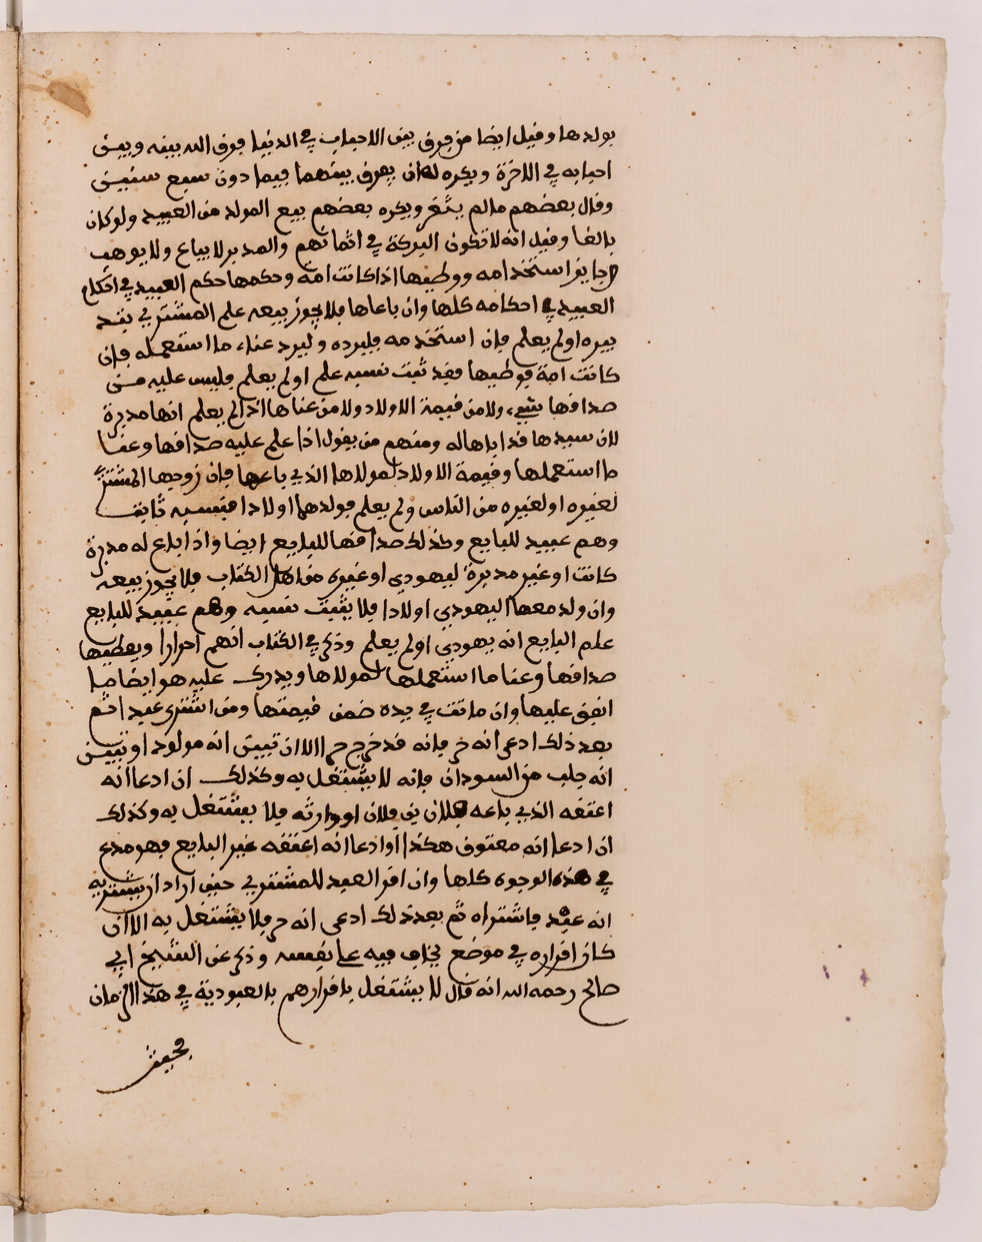 بولدها وقيل ايضا من فرق بين الاحباب في الدنيا فرق الله بينه وبين
احبابه في الاخرة ويكره له ان يفرق بينهما فيما دون سبع سنين
وقال بعضهم مالم يثغر ويكره بعضهم بيع المولد من العبيد ولو كان
بالغا وقيل انه لا تكون البركة في اثمانهم والمدبر لا يباع ولا يوهب
وجايز استخدامه ووطيها اذا كانت امة وحكمها حكم العبيد في احكام
العبيد في احكامه كلها وان باعها فلا يجوز بيعه علم المشتري بتد
بيره او لم يعلم فان استخدمه فليرده وليرد عناء ما استعمله فان
كانت امة فوطيها فقد ثبت نسبه علم او لم يعلم وليس عليه من
صداقها شيء ولا من قيمة الاولاد ولا من عناها اذا لم يعلم انها مدبرة
لان سيدها قد اباها له ومنهم من يقول اذا علم عليه صداقها وعنا
ما استعملها وقيمة الاولاد لمولاها الذي باعها فان زوجها المشتري
لغيره او لغيره من الناس ولم يعلم فولدهما اولادا فنسبه ثابت
وهم عبيد للبايع وكذلك صداقها للبايع ايضا واذا باع له مدبرة
كانت او غير مدبرة ليهودي او غيره من اهل الكتاب فلا يجوز بيعه
وان ولد معها اليهودي اولادا فلا يثبت نسبه وهم عبيد للبايع
علم البايع انه يهودي او لم يعلم وذكر في الكتاب انهم احرارا ويعطيها
صداقها وعنا ما استعملها لمولاها ويدرك عليه هو ايضا ما
انفق عليها وان ماتت في يده ضمن قيمتها ومن اشترى عبدا ثم
بعد ذلك ادعى انه حر فانه قد خرج حر الا ان تبين انه مولود او تبين
انه جلب من السودان فانه لا يشتغل به وكذلك ان ادعا انه
اعتقه الذي باعه فلان بن فلان او وارثه فلا يشتغل به وكذلك
ان ادعا انه معتوق هكذا او ادعا انه اعتقه غير البايع فهو مدع
في هذه الوجوه كلها وان اقر العبد للمشتري حين اراد ان يشتريه
انه عبد فاشتراه ثم بعد ذلك ادعى انه حر فلا يشتغل به الا ان
كان اقراره في موضع يخاف فيه على نفسه وذكر عن الشيخ ابي
صالح رحمه الله انه قال لا يشتغل باقرارهم بالعبودية في هذا الزمان